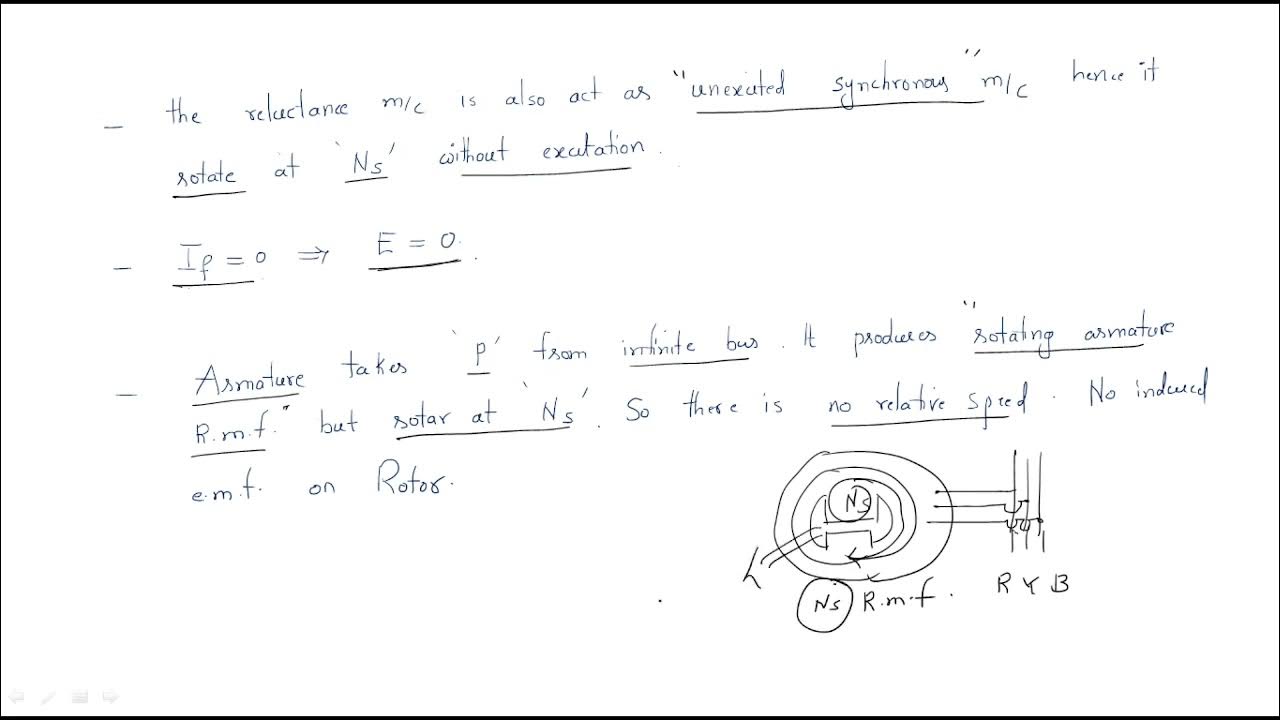 - the reluctance m/c is also act as "unexcited synchronous" m/c hence it
rotate at 'Ns' without excitation.
- If = 0 ⇒ E = 0.
- Armature takes 'P' from infinite bus. It produces "rotating armature
R.m.f." but rotar at 'Ns'. So there is no relative speed. No induced
e.m.f. on Rotor.
Ns
Ns R.m.f.
R Y B